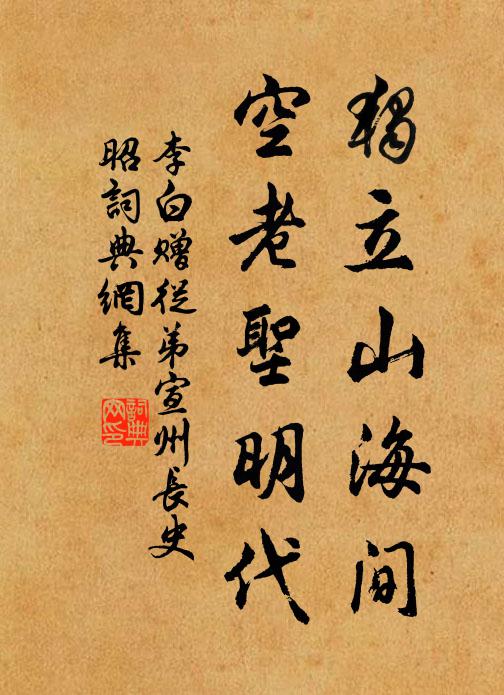 獨立山海間
空老聖明代
李白贈從弟宣州長史
昭詞典網集
詞典
网印